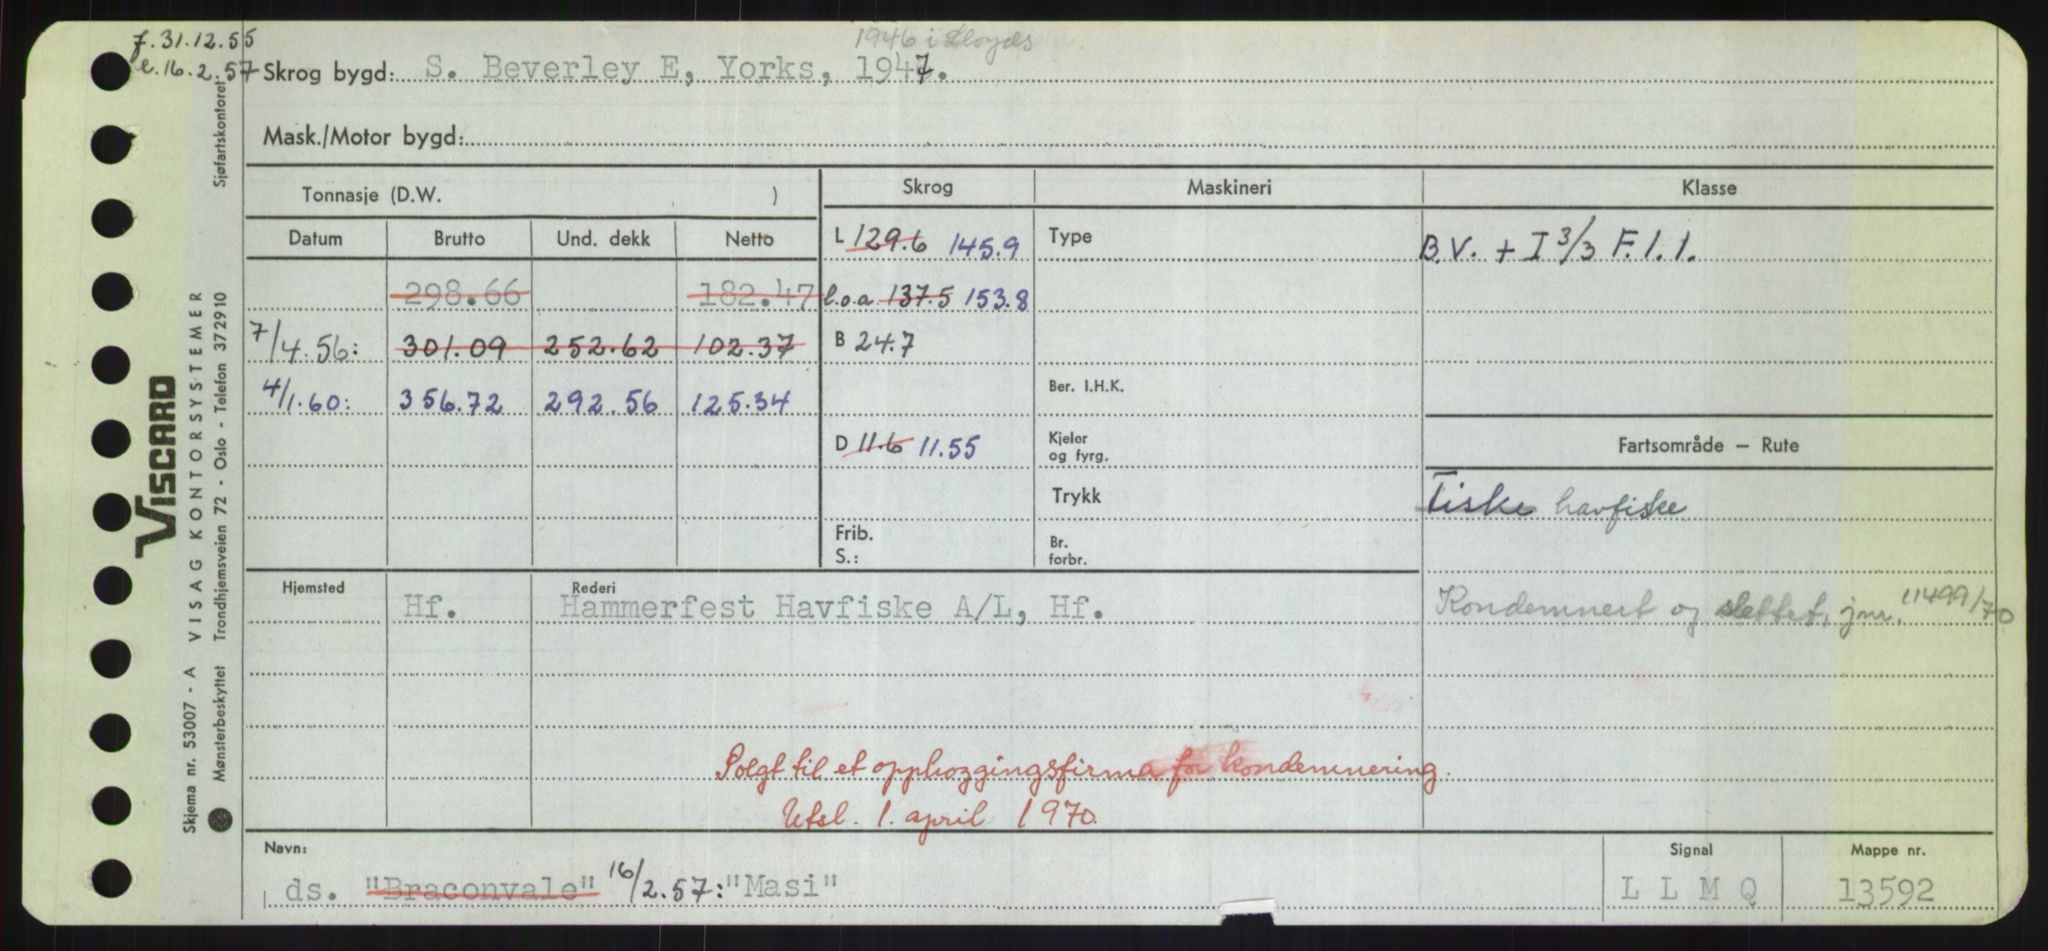 f. 31.12.55
e. 16.2.57
1946 i Lloyds
Skrog bygd: S. Beverley E, Yorks, 1947.
Mask./Motor bygd:
Tonnasje (D.W. )
Skrog
Maskineri
Klasse
Datum Brutto Und. dekk Netto
L 129.6 145.9
Type
B.V. + I 3/3 F.1.1.
298.66 182.47
l.o.a. 137.5 153.8
7/4.56: 301.09 252.62 102.37
B 24.7
4/1.60: 356.72 292.56 125.34
Ber. I.H.K.
D 11.6 11.55
Kjeler og fyrg.
Fartsområde — Rute
Trykk
Fiske havfiske
Frib.
S.:
Br. forbr.
Hjemsted
Rederi
Hf. Hammerfest Havfiske A/L, Hf.
Kondemnert og slettet, jnr. 11499/70
Solgt til et opphoggingsfirma for kondemnering.
Utsl. 1. april 1970.
Navn:
Signal
Mappe nr.
ds. "Braconvale" 16/2.57: "Masi"
L L M Q
13592
VISCARD
Skjema nr. 53007 - A VISAG KONTORSYSTEMER
Mønsterbeskyttet Trondhjemsveien 72 - Oslo - Telefon 372910
Sjøfartskontoret